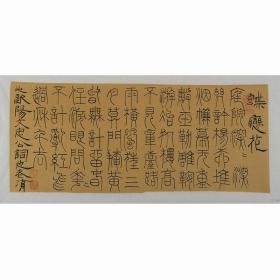 蝶戀花
庭院深=深
幾許楊柳堆
烟簾幕無重
數玉勒雕鞍
游冶處樓高
不見章臺路
雨橫風狂三
月暮門掩黃
昏無計留春
住淚眼問花=
不語亂紅飛
過秋千去
歐陽文忠公詞